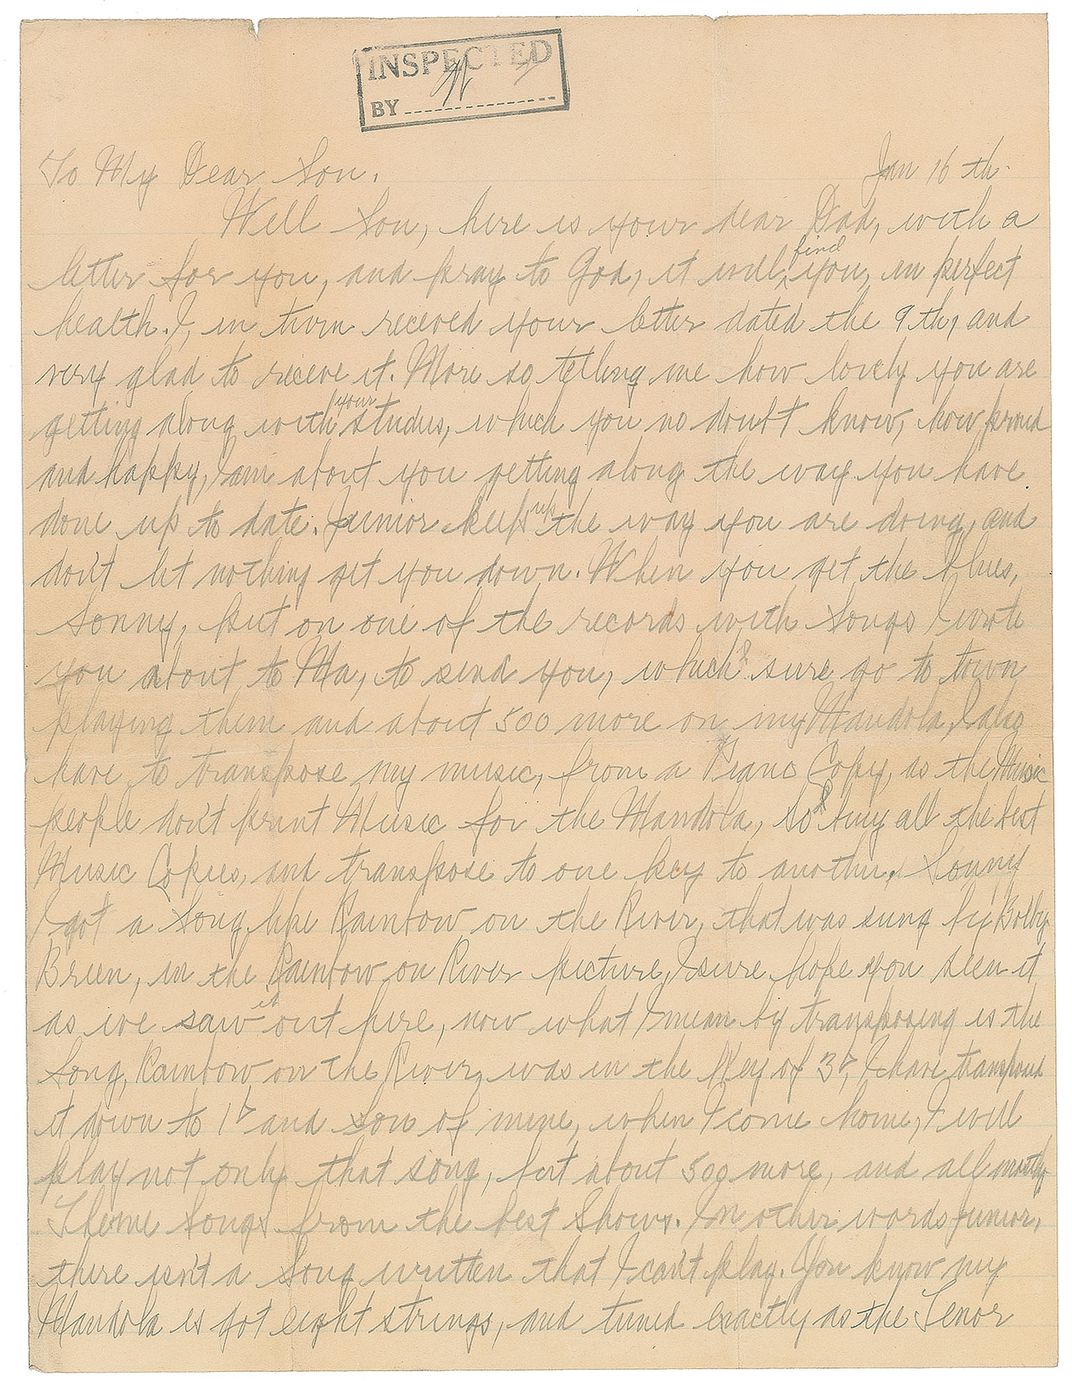 INSPECTED
BY
To My Dear Son.
Jan 16 th.
Well Son, here is your dear Dad, with a
letter for you, and pray to God, it will find you, in perfect
health. I, in turn receved your letter dated the 9th, and
very glad to receve it. More so telling me how lovely you are
getting along with your studies, which you no doubt know, how proud
and happy, I am about you getting along the way you have
done up to date. Junior keep up the way you are doing, and
don't let nothing get you down. When you get the blues,
Sonny, put on one of the records with Songs I wrote
you about to Ma, to send you, which I sure go to town
playing them and about 500 more on my Mandola, I also
have to transpose my music, from a Piano Copy, as the Music
people don't print Music for the Mandola, so I buy all the best
Music Copies, and transpose to one key to another. Sonny
I got a song like Rainbow on the River, that was sung by Bobby
Breen, in the Rainbow on River picture, I sure hope you seen it
as we saw it out here, now what I mean by transposing is the
Song, Rainbow on the River, was in the Key of 3♭, I have transposed
it down to 1♭ and Son of mine, when I come home, I will
play not only that song, but about 500 more, and all mostly
Theme Songs from the best Shows. In other words Junior,
there isn't a Song written that I can't play. You know my
Mandola is got eight strings, and tuned exactly as the Tenor